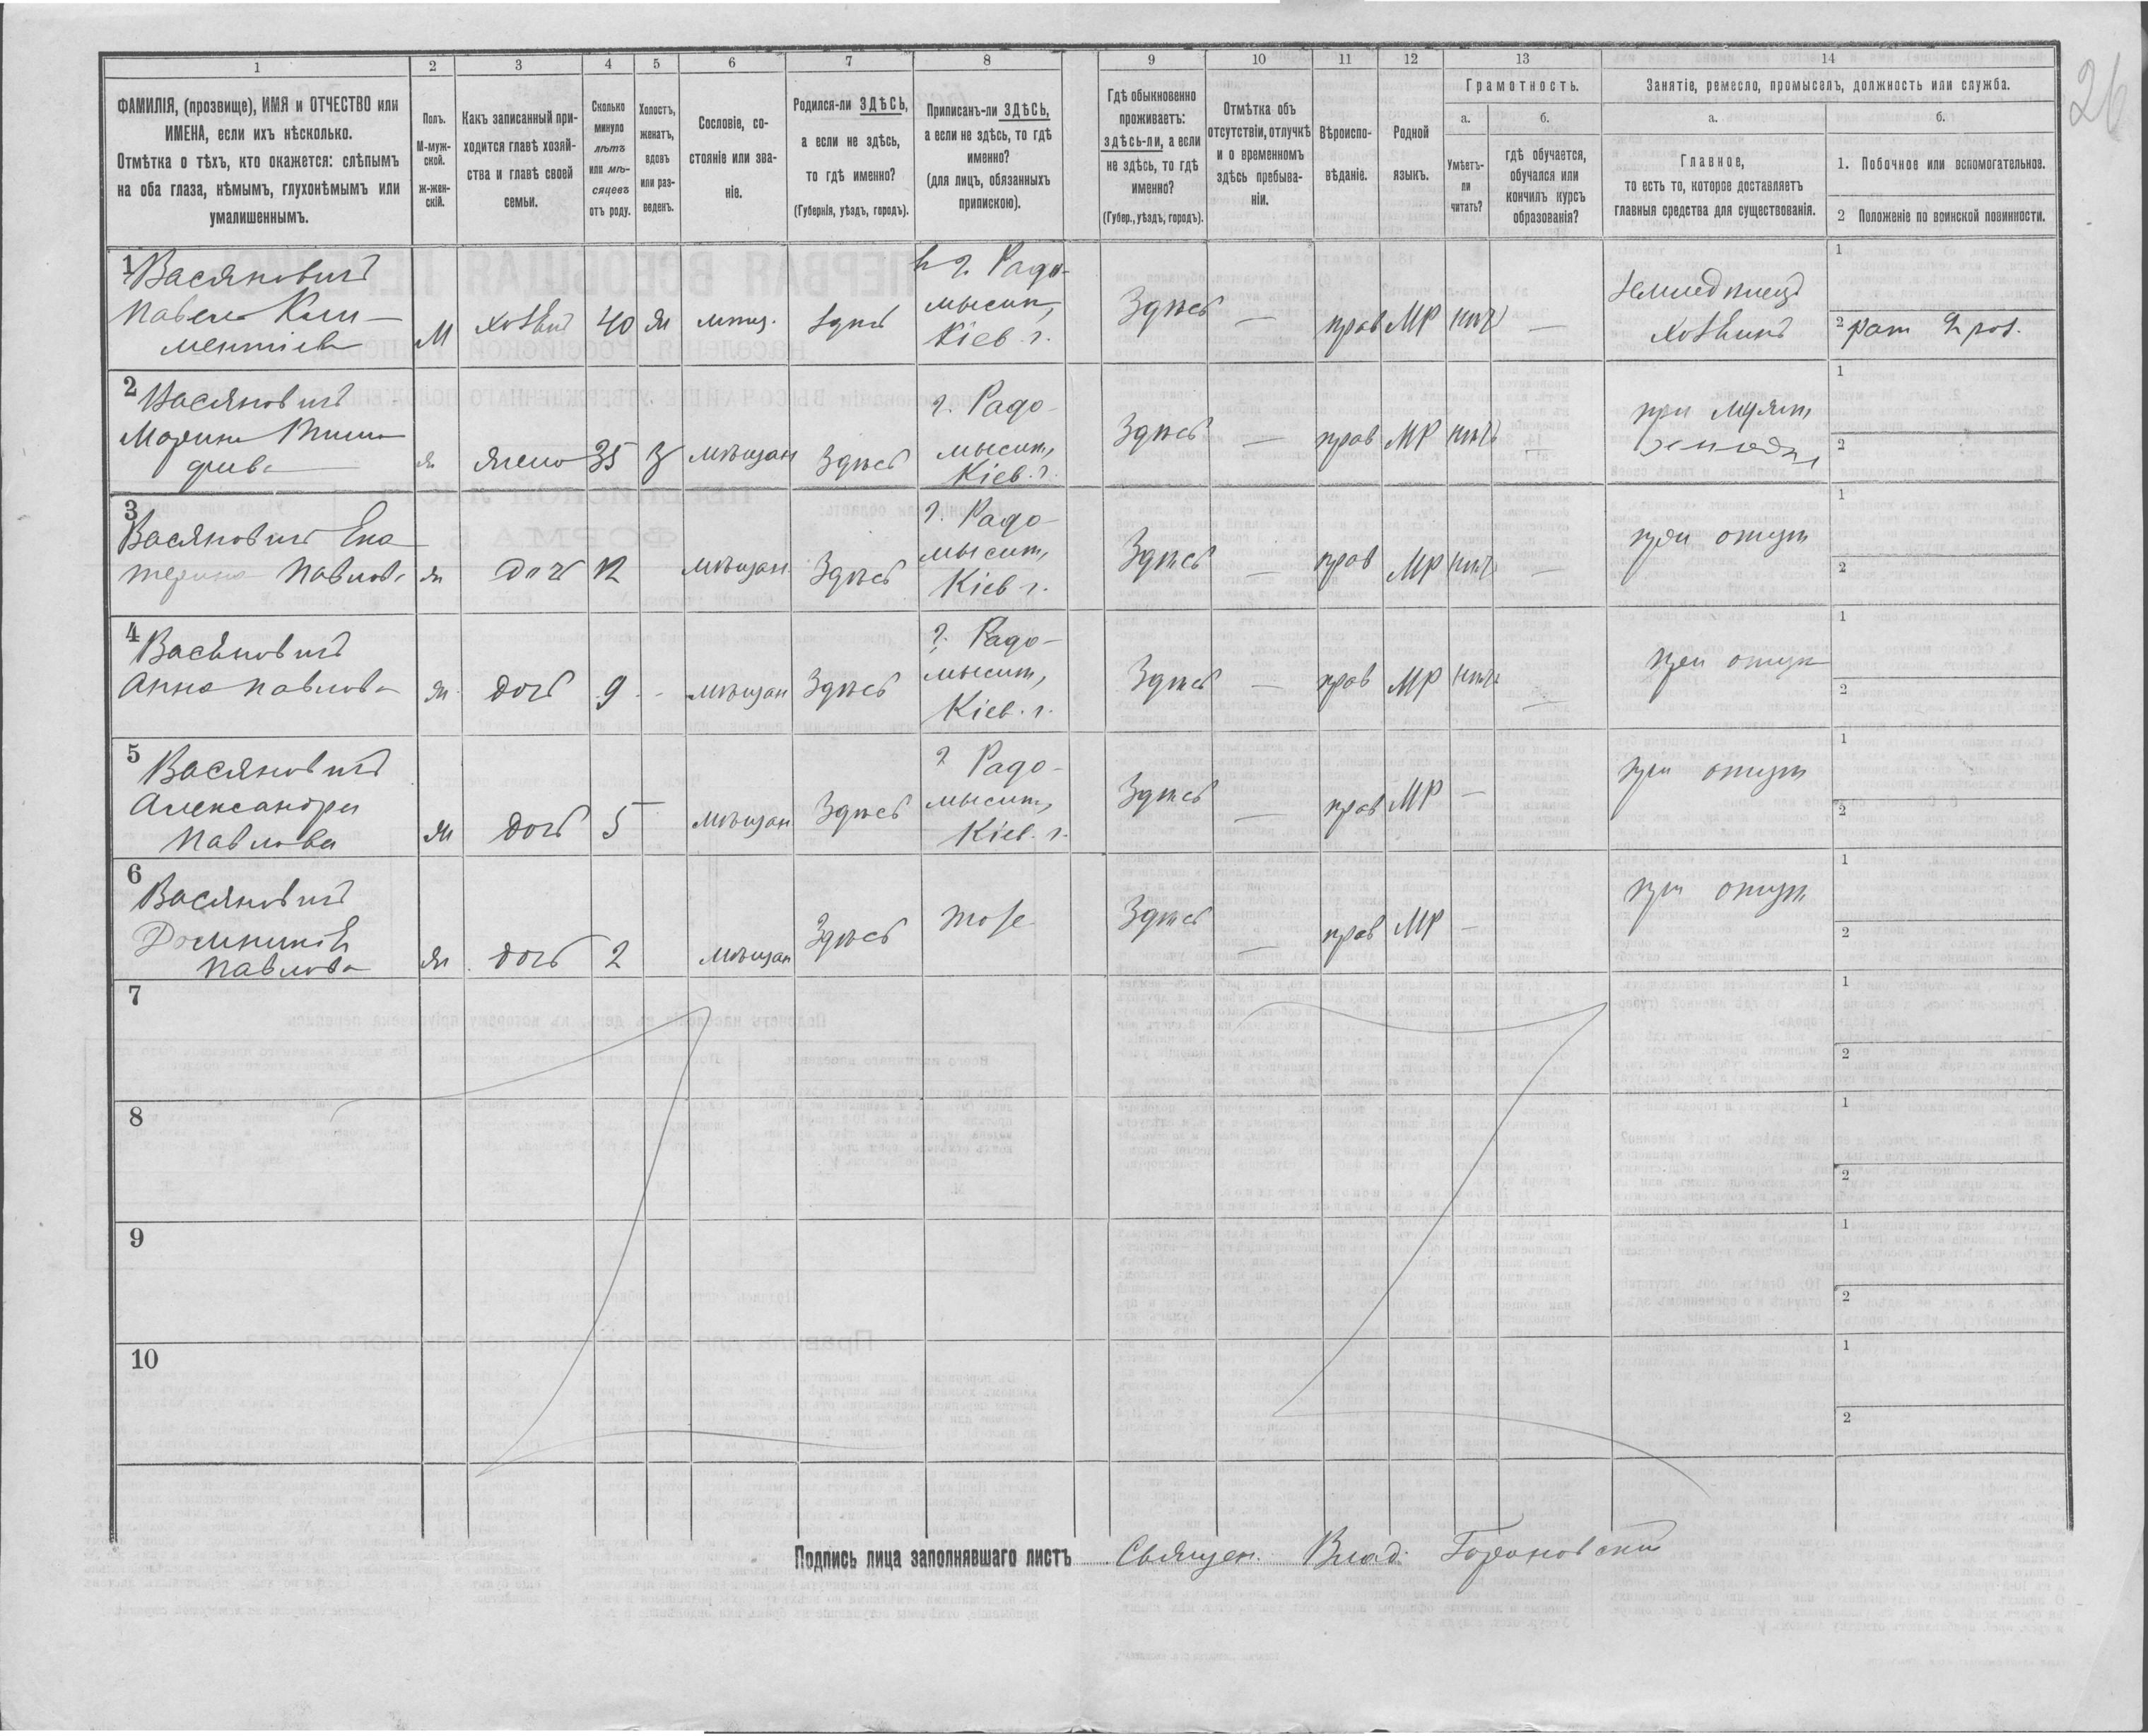 26
1
2
3
4
5
6
7
8
9
10
11
12
13
14
ФАМИЛІЯ, (прозвище), ИМЯ и ОТЧЕСТВО или
ИМЕНА, если ихъ нѣсколько.
Отмѣтка о тѣхъ, кто окажется: слѣпымъ
на оба глаза, нѣмымъ, глухонѣмымъ или
умалишеннымъ.
Полъ.
М-муж-
ской.
ж-жен-
скій.
Какъ записанный при-
ходится главѣ хозяй-
ства и главѣ своей
семьи.
Сколько
минуло
лѣтъ
или мѣ-
сяцевъ
отъ роду.
Холостъ,
женатъ,
вдовъ
или раз-
веденъ.
Сословіе, со-
стояніе или зва-
ніе.
Родился-ли ЗДѢСЬ,
а если не здѣсь,
то гдѣ именно?
(Губернія, уѣздъ, городъ).
Приписанъ-ли ЗДѢСЬ,
а если не здѣсь, то гдѣ
именно?
(для лицъ, обязанныхъ
припискою).
Гдѣ обыкновенно
проживаетъ:
здѣсь-ли, а если
не здѣсь, то гдѣ
именно?
(Губер., уѣздъ, городъ).
Отмѣтка объ
отсутствіи, отлучкѣ
и о временномъ
здѣсь пребыва-
ніи.
Вѣроиспо-
вѣданіе.
Родной
языкъ.
Грамотность.
а.
Умѣетъ-
ли
читать?
б.
гдѣ обучается,
обучался или
кончилъ курсъ
образованія?
Занятіе, ремесло, промыселъ, должность или служба.
а.
Главное,
то есть то, которое доставляетъ
главныя средства для существованія.
б.
1. Побочное или вспомогательное.
2 Положеніе по воинской повинности.
1
Васяновичъ
Павелъ Кли-
ментіев
М
40
Ж
здѣсь
г. Радо-
мысит,
Кіев. г.
Здѣсь
—
прав
МР
нѣтъ
—
1
2
2
Васяновичъ
Марина
ж
жена
35
З
мѣщан
Здѣсь
г. Радо-
мысит,
Кіев. г.
Здѣсь
—
прав
МР
нѣтъ
—
при муж
1
2
3
Васяновичъ Ека-
терина Павлова
ж
дочь
12
мѣщан.
Здѣсь
г. Радо-
мысит,
Кіев. г.
Здѣсь
—
прав
МР
нѣтъ
—
при отцѣ
1
2
4
Васяновичъ
Анна Павлова
ж
дочь
9
-
мѣщан
Здѣсь
г. Радо-
мысит,
Кіев. г.
Здѣсь
—
прав
МР
нѣтъ
—
при отцѣ
1
2
5
Васяновичъ
Александра
Павлова
ж
дочь
5
мѣщан
Здѣсь
г. Радо-
мысит,
Кіев. г.
Здѣсь
—
прав
МР
—
при отцѣ
1
2
6
Васяновичъ
Павлова
ж
дочь
2
мѣщан
Здѣсь
тоже
Здѣсь
—
прав
МР
-
при отцѣ
1
2
7
1
2
8
1
2
9
1
2
10
1
2
Подпись лица заполнявшаго листъ Священ. Влад.